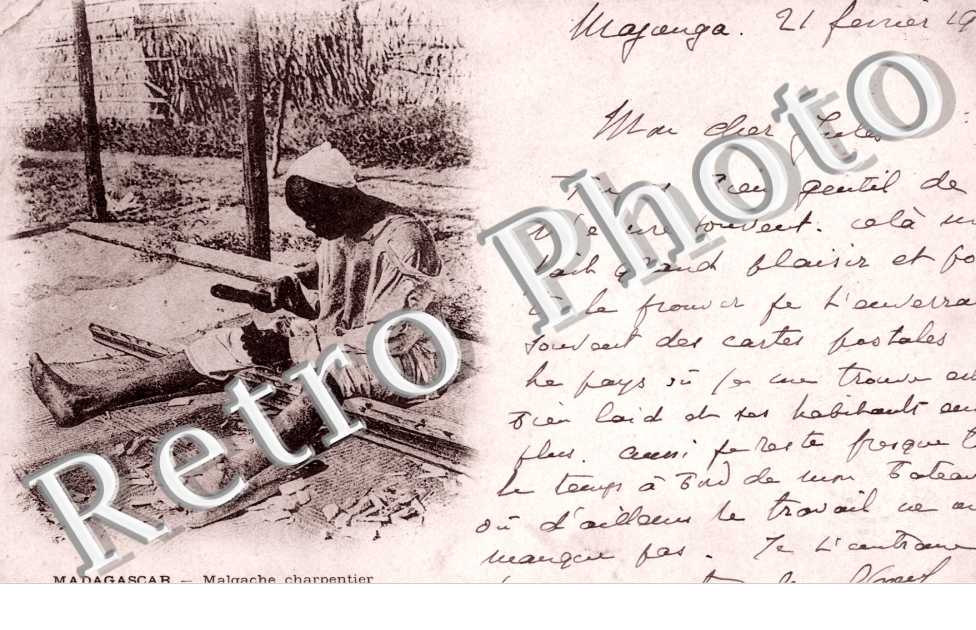 Majunga. 21 février 19
Mon cher Jules
bien gentil de
souvent. celà m
fait grand plaisir et po
te prouver je t'enverra
souvent des cartes postales
Le pays où je me trouve es
bien laid et ses habitants en
plus. aussi je reste presque
le temps à bord de mon bateau
où d'ailleurs le travail ne
manque pas. Je t'
MADAGASCAR — Malgache charpentier
Retro Photo